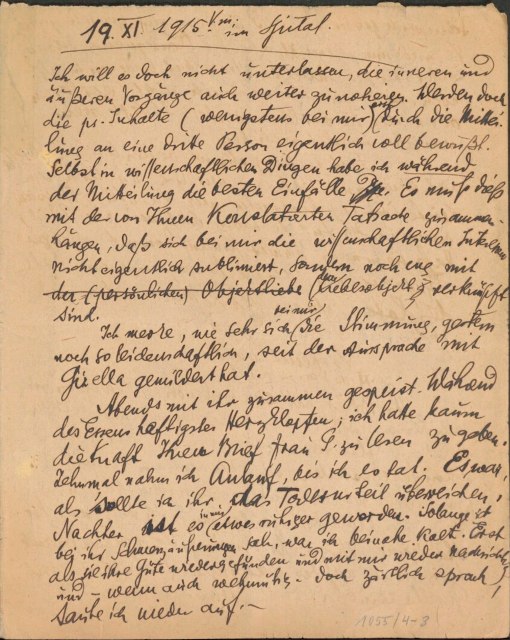 19. XI. 1915 Vm. im Spital.
Ich will es doch nicht unterlassen, die inneren und
äußeren Vorgänge auch weiter zu notieren. Werden doch
die ps. Inhalte (wenigstens bei mir) erst durch die Mittei-
lung an eine dritte Person eigentlich voll bewußt.
Selbst in wissenschaftlichen Dingen habe ich während
der Mitteilung die besten Einfälle. Es muß dies
mit der von Ihnen konstatierten Tatsache zusammen-
hängen, daß sich bei mir die wissenschaftlichen Interessen
nicht eigentlich sublimiert, sondern noch eng mit
der (persönlichen) Objektliebe verknüpft
sind.
Ich merke, wie sehr sich bei mir die Stimmung, gestern
noch so leidenschaftlich, seit der Aussprache mit
Gisella gemildert hat.
Abends mit ihr zusammen gespeist. Während
des Essens heftigstes Herzklopfen; ich hatte kaum
die Kraft Ihren Brief Frau G. zu lesen zu geben.
Zehnmal nahm ich Anlauf, bis ich es tat. Es war,
als sollte ich ihr das Todesurteil überreichen.
Nachher ist es in mir etwas ruhiger geworden. Solange ich
bei ihr Schmerzäußerungen sah, war ich beinahe kalt. Erst
als sie ihre Güte wiedergefunden und mit mir wieder nachsichtig
und – wenn auch wehmütig – doch zärtlich sprach,
taute ich wieder auf. –
1055/4-3